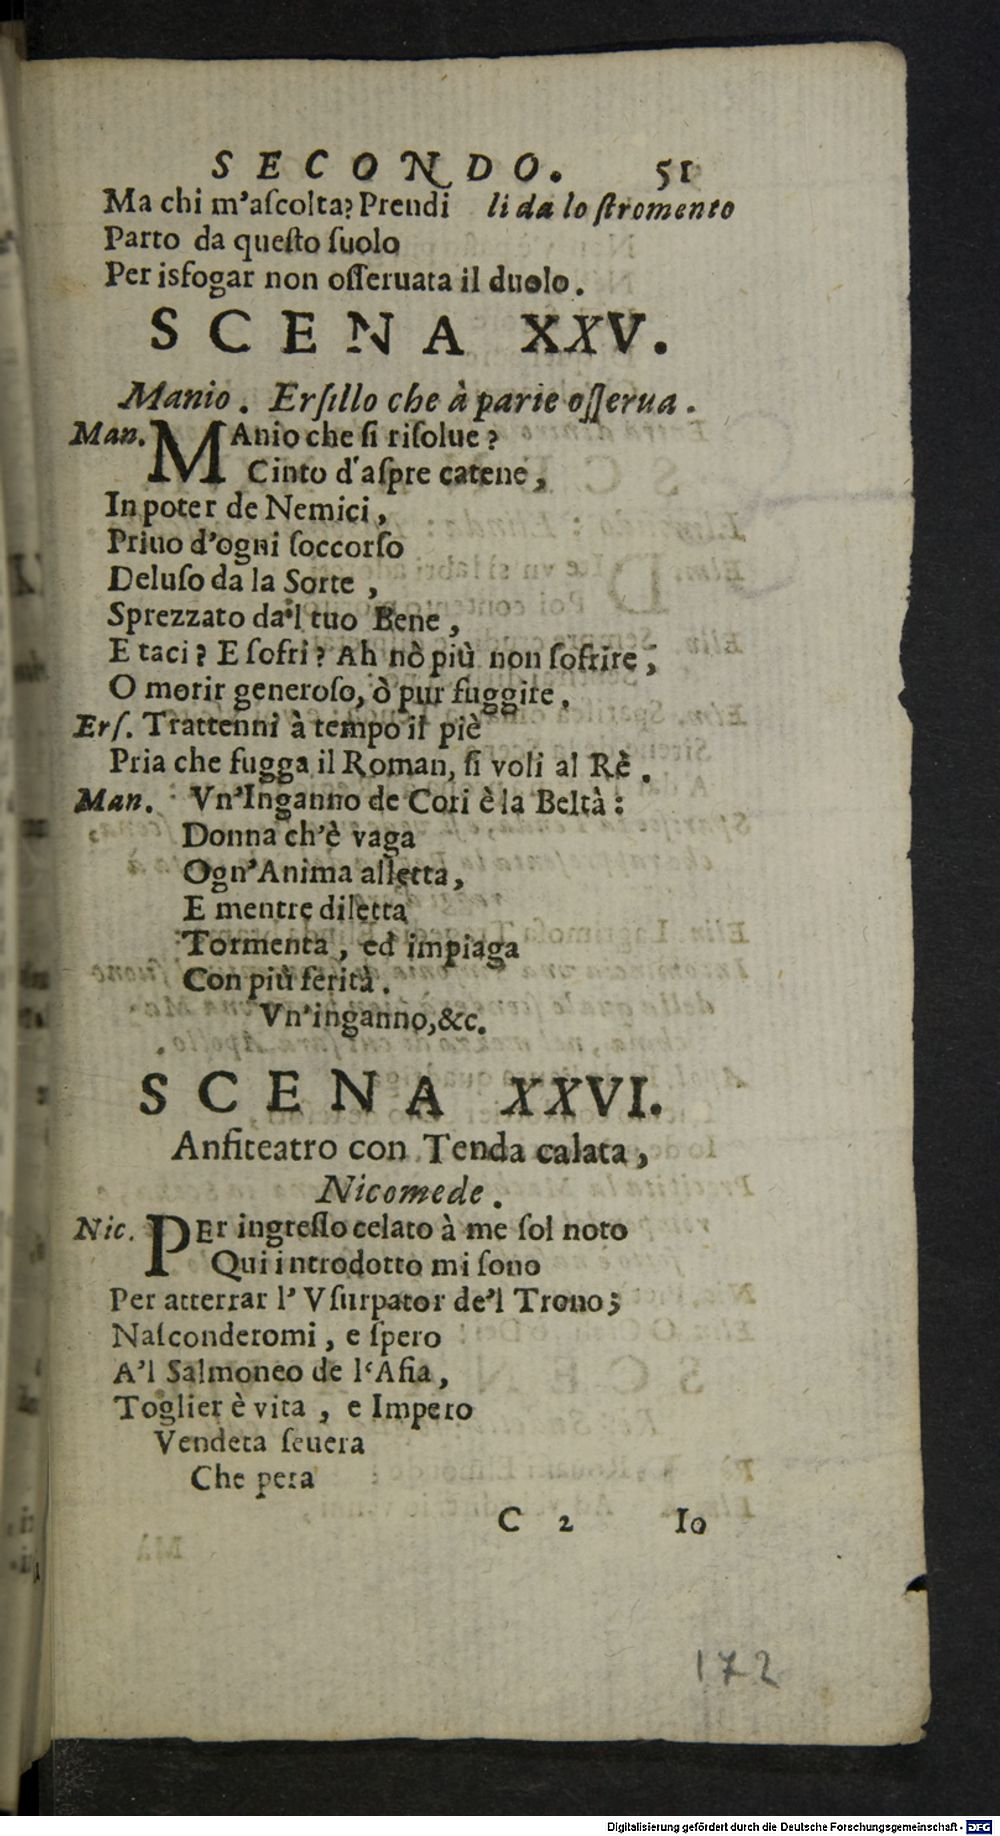 SECONDO. 51
Ma chi m'aſcolta? Prendi li da lo ſtromento
Parto da queſto ſuolo
Per isfogar non oſſeruata il duolo.
SCENA XXV.
Manio. Erſillo che à parte oſſerua.
Man. MAnio che ſi riſolue?
Cinto d'aſpre catene,
In poter de Nemici,
Priuo d'ogni ſoccorſo
Deluſo da la Sorte,
Sprezzato da'l tuo Bene,
E taci? E ſofri? Ah nò più non ſofrire;
O morir generoſo, ò pur fuggire.
Erſ. Trattenni à tempo il piè
Pria che fugga il Roman, ſi voli al Rè.
Man. Vn'Inganno de Cori è la Beltà:
Donna ch'è vaga
Ogn'Anima alletta,
E mentre diletta
Tormenta, ed impiaga
Con più ferità.
Vn'inganno,&c.
SCENA XXVI.
Anfiteatro con Tenda calata,
Nicomede.
Nic. PEr ingreſſo celato à me ſol noto
Qui introdotto mi ſono
Per atterrar l'Vſurpator de'l Trono;
Naſconderomi, e ſpero
A'l Salmoneo de l'Aſia,
Toglier è vita, e Impero
Vendeta ſeuera
Che pera
C 2 Io
172
Digitalisierung gefördert durch die Deutsche Forschungsgemeinschaft - DFG